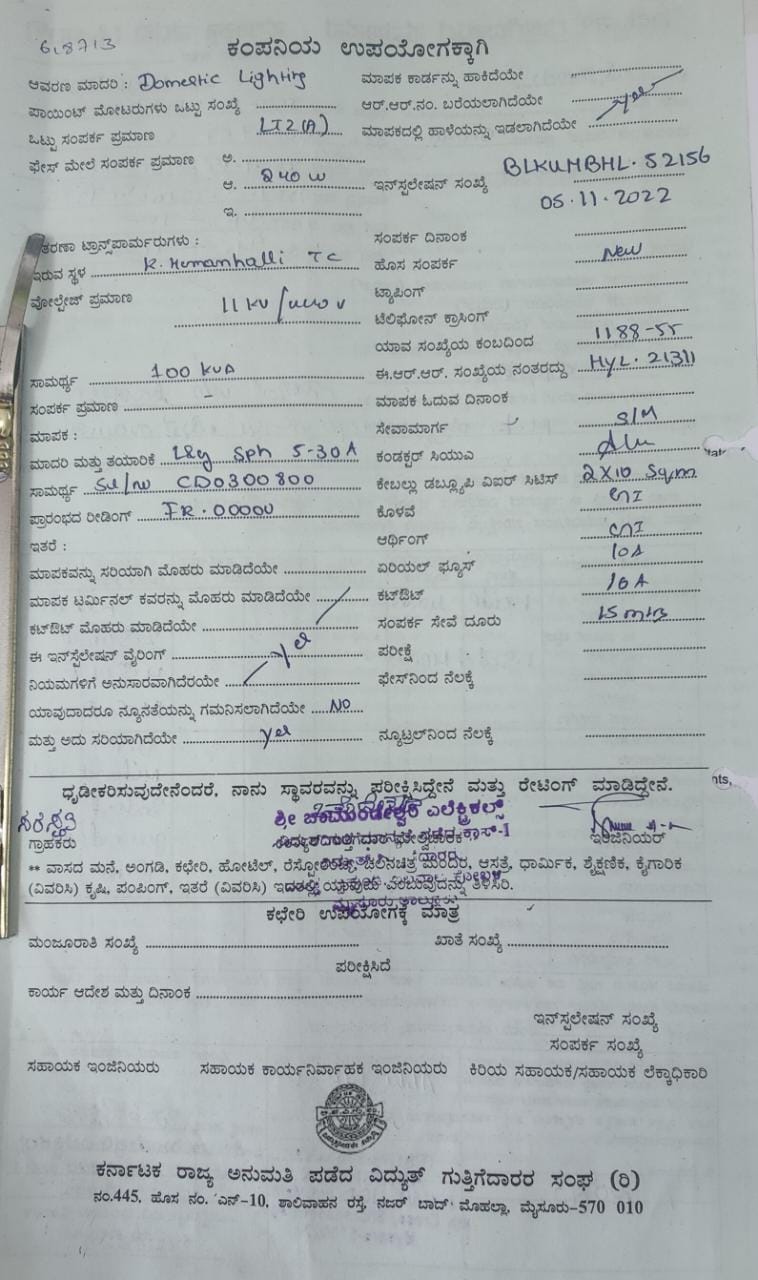 6,8713
ಕಂಪನಿಯ ಉಪಯೋಗಕ್ಕಾಗಿ
ಆವರಣ ಮಾದರಿ : Domestic Lighting ಮಾಪಕ ಕಾರ್ಡನ್ನು ಹಾಕಿದೆಯೇ
ಪಾಯಿಂಟ್ ಮೋಟರುಗಳು ಒಟ್ಟು ಸಂಖ್ಯೆ ಆರ್.ಆರ್.ನಂ. ಬರೆಯಲಾಗಿದೆಯೇ yes
ಒಟ್ಟು ಸಂಪರ್ಕ ಪ್ರಮಾಣ LT2(A) ಮಾಪಕದಲ್ಲಿ ಹಾಳೆಯನ್ನು ಇಡಲಾಗಿದೆಯೇ
ಫೇಸ್ ಮೇಲೆ ಸಂಪರ್ಕ ಪ್ರಮಾಣ ಅ.
ಆ. 240 W ಇನ್‌ಸ್ಟಲೇಷನ್ ಸಂಖ್ಯೆ BLKUMBHL. 52156
ಇ. 05.11.2022
ತರಣಾ ಟ್ರಾನ್ಸ್‌ಪಾರ್ಮರುಗಳು : ಸಂಪರ್ಕ ದಿನಾಂಕ
ಇರುವ ಸ್ಥಳ TC ಹೊಸ ಸಂಪರ್ಕ New
ವೋಲ್ಟೇಜ್ ಪ್ರಮಾಣ 11 KV ಟ್ಯಾಪಿಂಗ್
ಟೆಲಿಫೋನ್ ಕ್ರಾಸಿಂಗ್
ಯಾವ ಸಂಖ್ಯೆಯ ಕಂಬದಿಂದ 1188-55
ಸಾಮರ್ಥ್ಯ 100 KVA ಈ.ಆರ್.ಆರ್. ಸಂಖ್ಯೆಯ ನಂತರದ್ದು HYL. 21311
ಸಂಪರ್ಕ ಪ್ರಮಾಣ - ಮಾಪಕ ಓದುವ ದಿನಾಂಕ
ಮಾಪಕ : ಸೇವಾಮಾರ್ಗ S/M
ಮಾದರಿ ಮತ್ತು ತಯಾರಿಕೆ L&g Sph 5-30A ಕಂಡಕ್ಟರ್ ಸಿಯುವಿ Alu
ಸಾಮರ್ಥ್ಯ Sl/no CD0300800 ಕೇಬಲ್ಲು ಡಬ್ಲ್ಯೂಪಿ ವಿಐರ್ ಸಿಟಿಸ್ 2X10 Sqm
ಪ್ರಾರಂಭದ ರೀಡಿಂಗ್ IR. 00000 ಕೊಳವೆ GI
ಇತರೆ : ಆರ್ಥಿಂಗ್ GI
ಮಾಪಕವನ್ನು ಸರಿಯಾಗಿ ಮೊಹರು ಮಾಡಿದೆಯೇ ಏರಿಯಲ್ ಫ್ಯೂಸ್ 10A
ಮಾಪಕ ಟರ್ಮಿನಲ್ ಕವರನ್ನು ಮೊಹರು ಮಾಡಿದೆಯೇ ಕಟ್‌ಔಟ್ 10A
ಕಟ್‌ಔಟ್ ಮೊಹರು ಮಾಡಿದೆಯೇ ಸಂಪರ್ಕ ಸೇವೆ ದೂರು 15 mtrs
ಈ ಇನ್‌ಸ್ಟೆಲೇಷನ್ ವೈರಿಂಗ್ yes ಪರೀಕ್ಷೆ
ನಿಯಮಗಳಿಗೆ ಅನುಸಾರವಾಗಿದೆರಯೇ ಫೇಸ್‌ನಿಂದ ನೆಲಕ್ಕೆ
ಯಾವುದಾದರೂ ನ್ಯೂನತೆಯನ್ನು ಗಮನಿಸಲಾಗಿದೆಯೇ NO
ಮತ್ತು ಅದು ಸರಿಯಾಗಿದೆಯೇ yes ನ್ಯೂಟ್ರಲ್‌ನಿಂದ ನೆಲಕ್ಕೆ
ಧೃಡೀಕರಿಸುವುದೇನೆಂದರೆ, ನಾನು ಸ್ಥಾವರವನ್ನು ಪರೀಕ್ಷಿಸಿದ್ದೇನೆ ಮತ್ತು ರೇಟಿಂಗ್ ಮಾಡಿದ್ದೇನೆ.
ಸರಸ್ವತಿ ಶ್ರೀ ಚಾಮುಂಡೇಶ್ವರಿ ಎಲೆಕ್ಟ್ರಿಕಲ್ಸ್
ಗ್ರಾಹಕರು ಇಂಜಿನಿಯರ್
** ವಾಸದ ಮನೆ, ಅಂಗಡಿ, ಕಛೇರಿ, ಹೋಟೆಲ್, ರೆಸ್ಟೋರೆಂಟ್, ಚಲನಚಿತ್ರ ಮಂದಿರ, ಆಸತ್ರೆ, ಧಾರ್ಮಿಕ, ಶೈಕ್ಷಣಿಕ, ಕೈಗಾರಿಕ
(ವಿವರಿಸಿ) ಕೃಷಿ, ಪಂಪಿಂಗ್, ಇತರೆ (ವಿವರಿಸಿ) ಇದರಲ್ಲಿ ಯಾವುದು ಎಂಬುವುದನ್ನು ತಿಳಿಸಿರಿ.
ಕಛೇರಿ ಉಪಯೋಗಕ್ಕೆ ಮಾತ್ರ
ಮಂಜೂರಾತಿ ಸಂಖ್ಯೆ ಖಾತೆ ಸಂಖ್ಯೆ
ಪರೀಕ್ಷಿಸಿದೆ
ಕಾರ್ಯ ಆದೇಶ ಮತ್ತು ದಿನಾಂಕ
ಇನ್‌ಸ್ಟಲೇಷನ್ ಸಂಖ್ಯೆ
ಸಂಪರ್ಕ ಸಂಖ್ಯೆ
ಸಹಾಯಕ ಇಂಜಿನಿಯರು ಸಹಾಯಕ ಕಾರ್ಯನಿರ್ವಾಹಕ ಇಂಜಿನಿಯರು ಕಿರಿಯ ಸಹಾಯಕ/ಸಹಾಯಕ ಲೆಕ್ಕಾಧಿಕಾರಿ
ಕರ್ನಾಟಕ ರಾಜ್ಯ ಅನುಮತಿ ಪಡೆದ ವಿದ್ಯುತ್ ಗುತ್ತಿಗೆದಾರರ ಸಂಘ (ರಿ)
ನಂ.445, ಹೊಸ ನಂ. ಎನ್-10, ಶಾಲಿವಾಹನ ರಸ್ತೆ, ನಜರ್ ಬಾದ್ ಮೊಹಲ್ಲಾ, ಮೈಸೂರು-570 010